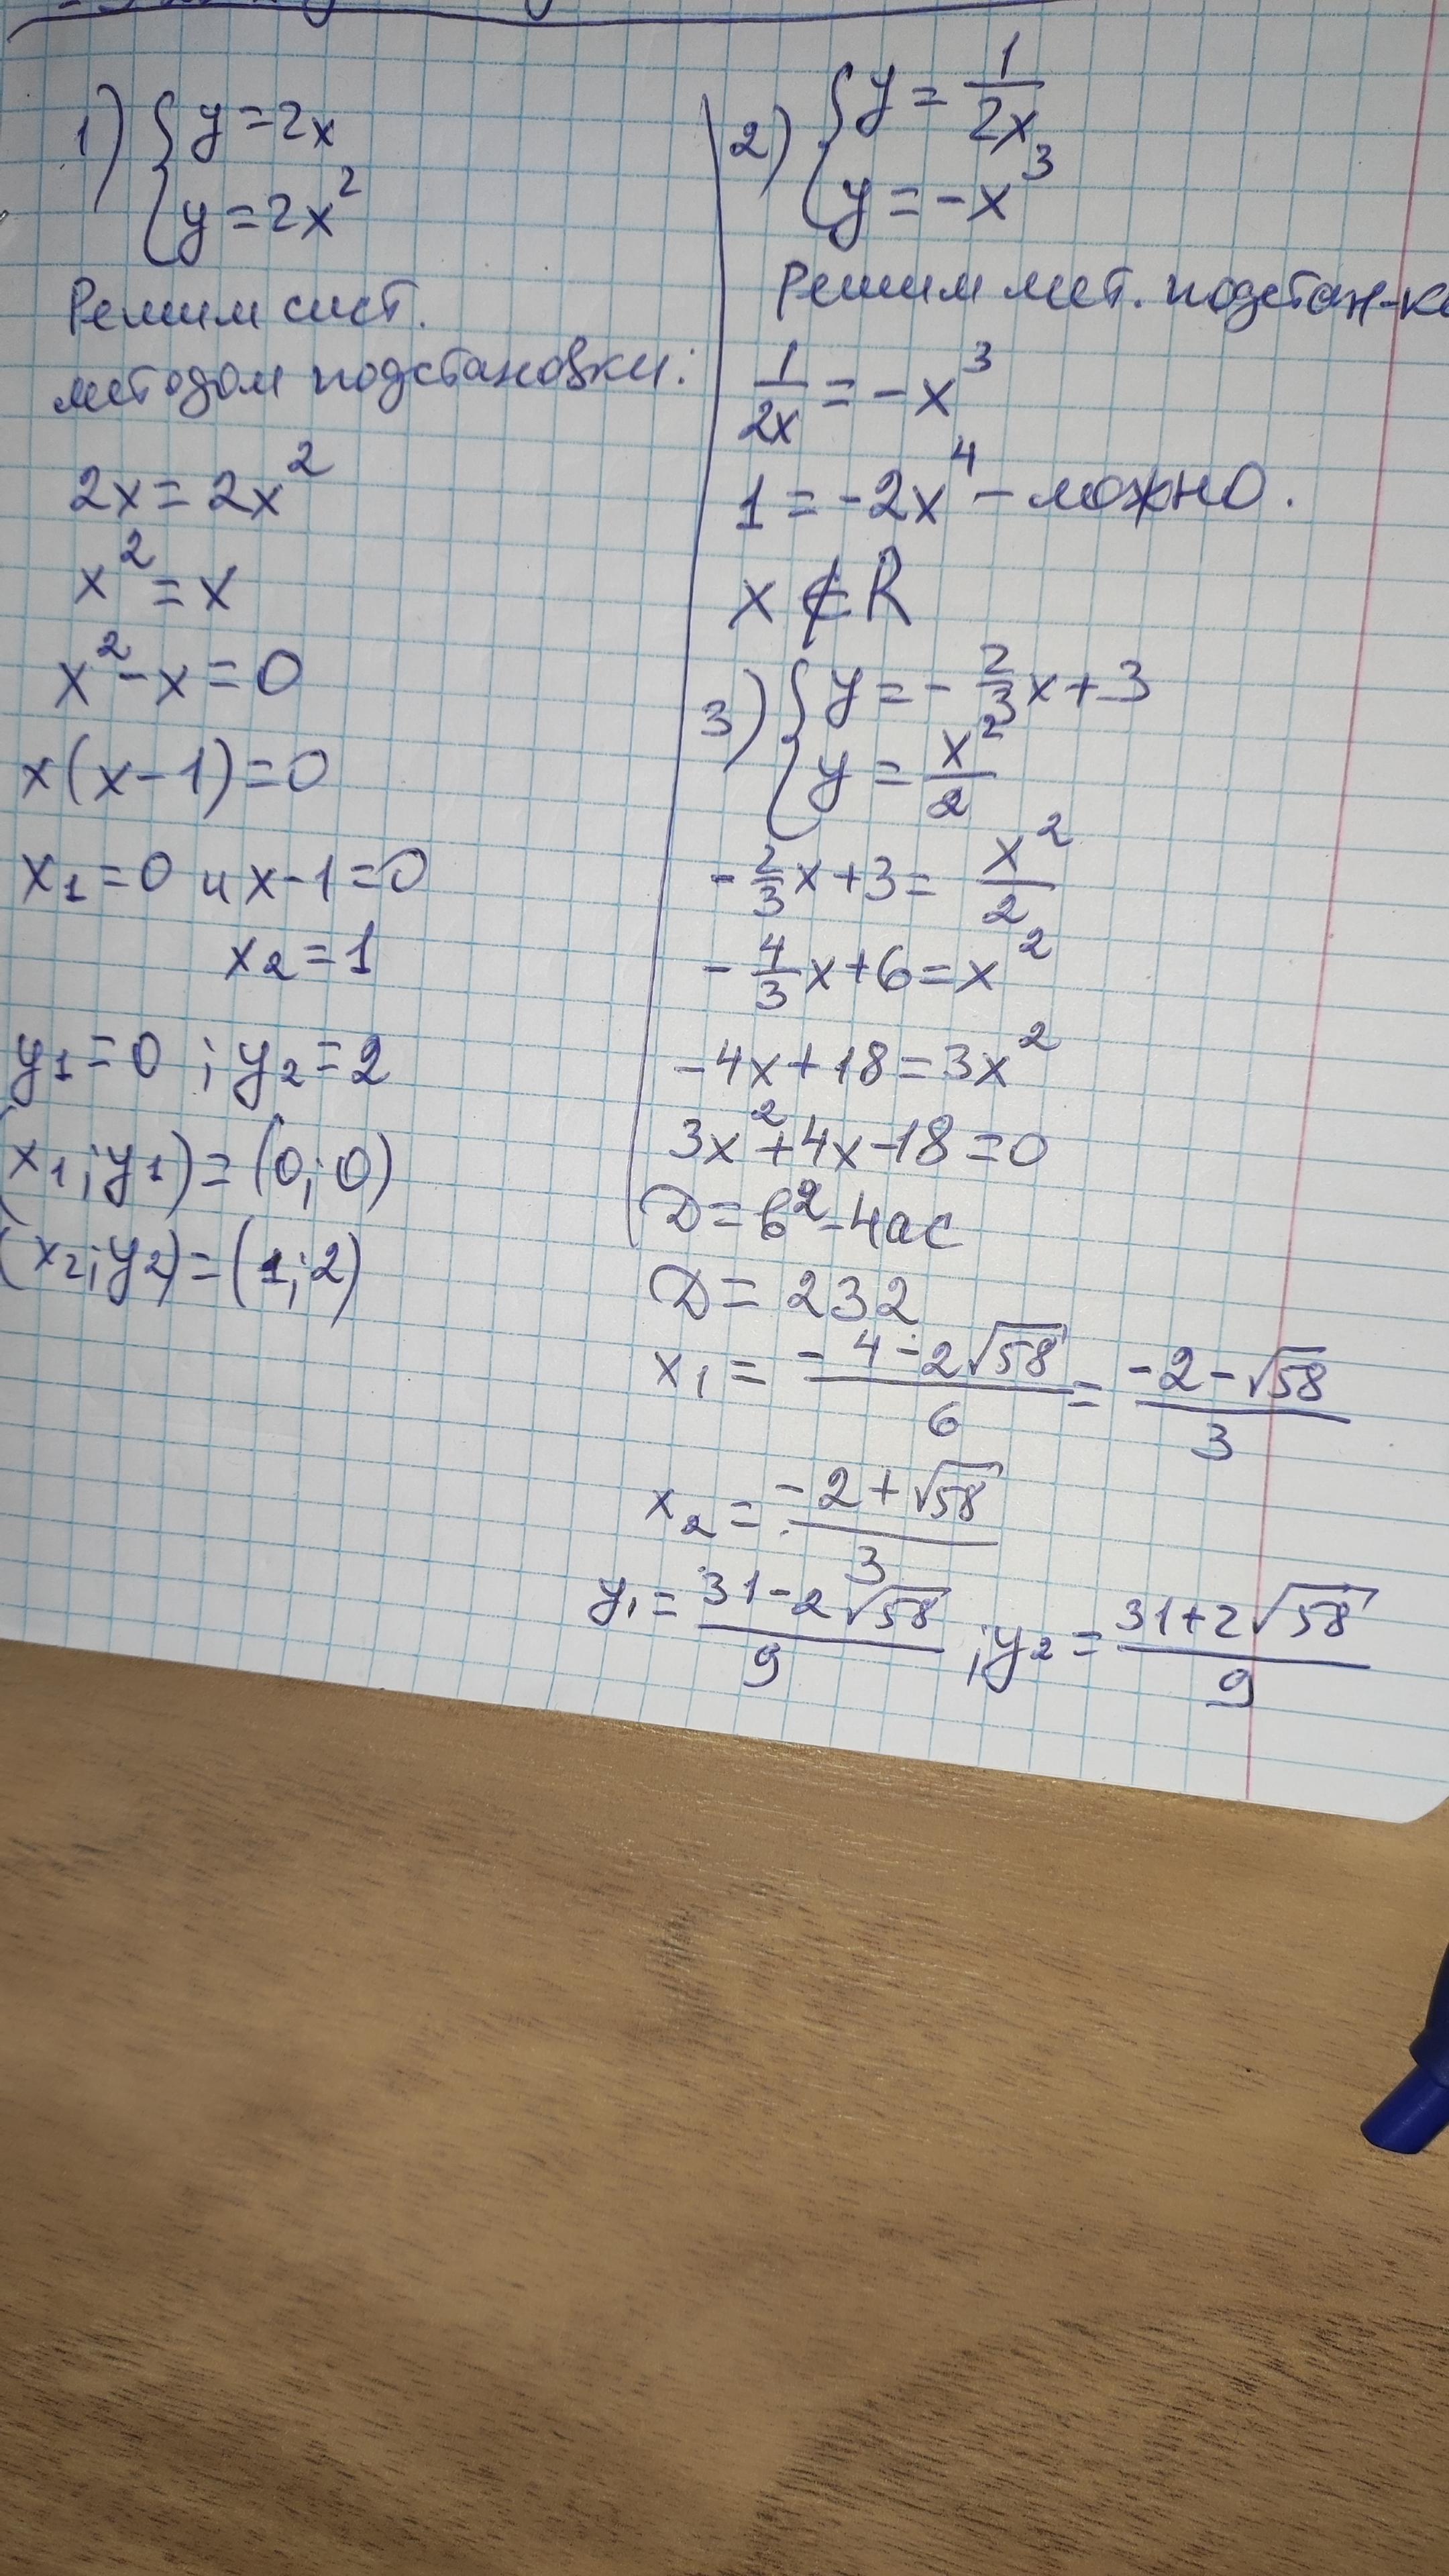 1) { y = 2x
y = 2x²
Решим сист.
методом подстановки:
2x = 2x²
x² = x
x² - x = 0
x(x - 1) = 0
x₁ = 0 и x - 1 = 0
x₂ = 1
y₁ = 0 ; y₂ = 2
(x₁; y₁) = (0; 0)
(x₂; y₂) = (1; 2)
2) { y = 1/2x
y = -x³
Решим мет. подстан-ки
1/2x = -x³
1 = -2x⁴ - можно.
x ∉ R
3) { y = -2/3x + 3
y = x²/2
-2/3x + 3 = x²/2
-4/3x + 6 = x²
-4x + 18 = 3x²
3x² + 4x - 18 = 0
D = b² - 4ac
D = 232
x₁ = (-4 - 2√58)/6 = (-2 - √58)/3
x₂ = (-2 + √58)/3
y₁ = (31 - 2√58)/9 ; y₂ = (31 + 2√58)/9